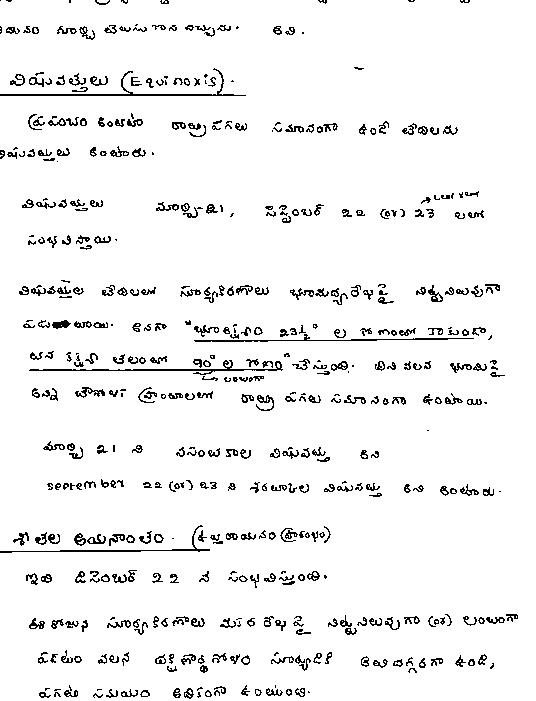 విషువత్తులు (Equinoxis).
ప్రపంచం అంతటా రాత్రి పగలు సమానంగా ఉండే తేదీలను
విషువత్తులు అంటారు.
విషువత్తులు మార్చి-21, సెప్టెంబర్ 22 (or) 23 లలో
సంభవిస్తాయి.
విషువత్తుల తేదీలలో సూర్యకిరణాలు భూమధ్యరేఖపై నిట్టనిలువుగా
పడుతాయి. అనగా "భూఅక్షం 23½° ల కోణంలో కాకుండా,
తన కక్ష్యా తలంలో 90° ల కోణం" చేస్తుంది. దీని వలన భూమిపై
లంబంగా
అన్ని భౌగోళిక ప్రాంతాలలో రాత్రి పగలు సమానంగా ఉంటాయి.
మార్చి 21 ని వసంతకాల విషువత్తు అని
september 22 (or) 23 ని శరత్కాల విషువత్తు అని అంటారు.
శీతల ఆయనాంతం. (ఉత్తరాయనం ప్రారంభం)
ఇది డిసెంబర్ 22 న సంభవిస్తుంది.
ఈ రోజున సూర్యకిరణాలు మకర రేఖ పై నిట్టనిలువుగా (or) లంబంగా
పడటం వలన దక్షిణార్ధగోళం సూర్యుడికి అతి దగ్గరగా ఉండి,
పగటి సమయం అధికంగా ఉంటుంది.